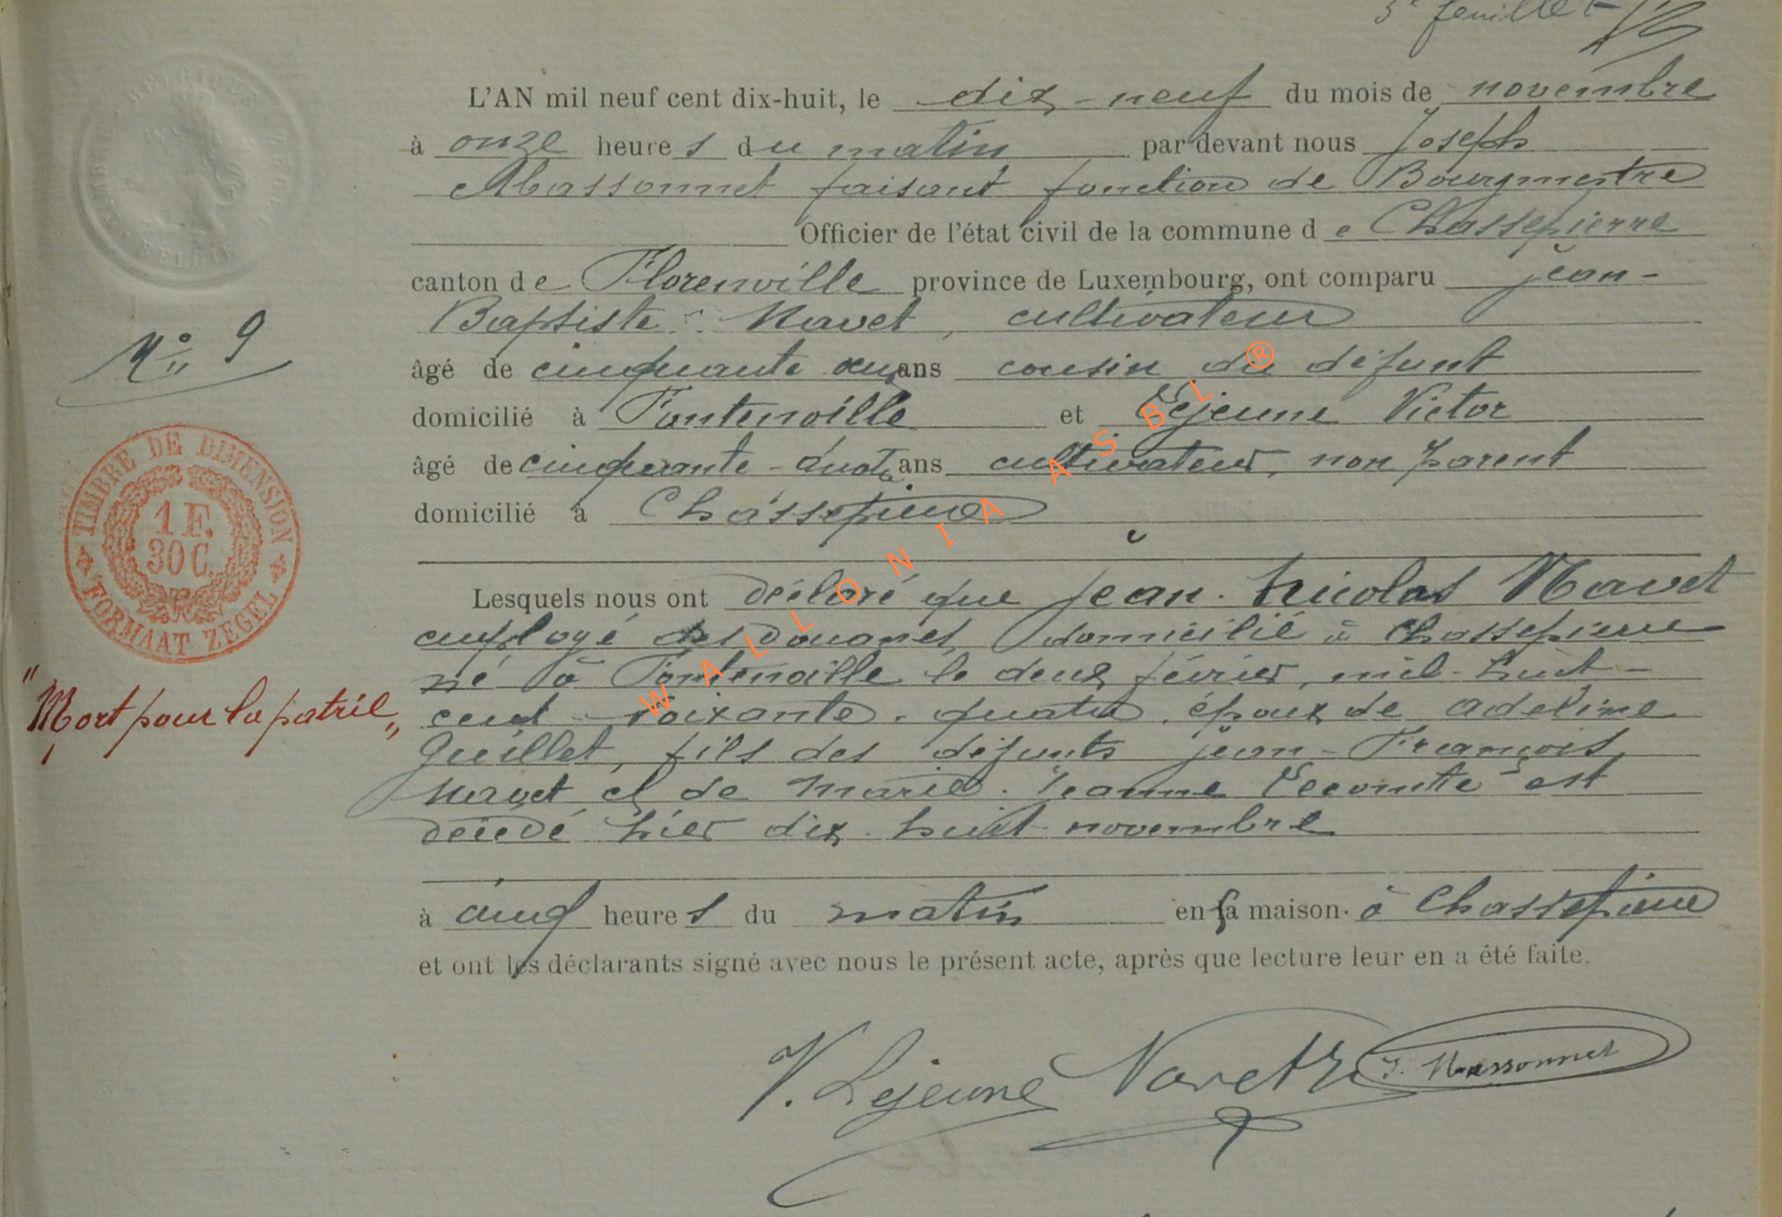 5e feuillet
L'AN mil neuf cent dix-huit, le dix-neuf du mois de novembre
à onze heures du matin par devant nous Joseph
Massonnet faisant fonction de Bourgmestre
Officier de l'état civil de la commune de Chassepierre
canton de Florenville province de Luxembourg, ont comparu jean-
Baptiste Navet, cultivateur
âgé de cinquante ans cousin du défunt
domicilié à Fontenoille et Lejeune Victor
âgé de cinquante-quatre ans cultivateur, non parent
domicilié à Chassepierre
Lesquels nous ont déclaré que jean-Nicolas Navet
employé des douanes, domicilié à Chassepierre
né à Fontenoille le deux février, mil-huit-
cent-soixante-quatre, époux de adeline
Guillet, fils des défunts jean-François
Navet et de Marie-Jeanne Lecomte est
décédé hier dix-huit novembre
à cinq heures du matin en sa maison à Chassepierre
et ont les déclarants signé avec nous le présent acte, après que lecture leur en a été faite.
V. Lejeune Navet J. Massonnet
No 9
TIMBRE DE DIMENSION
1 F.
30 C.
FORMAAT ZEGEL
"Mort pour la patrie"
BELGIQUE
BELGIE
WALLONIA ASBL ®